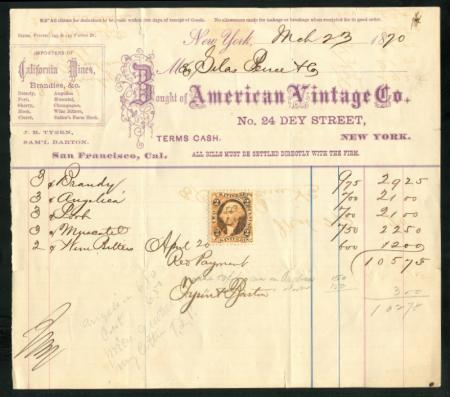 All claims for deductions to be made within five days of receipt of Goods. No allowance made for leakage or breakage when receipted for in good order.
New York, Mch 23 1870
IMPORTERS OF
California Wines,
Brandies, &c.
Brandy, Angelica
Port, Muscatel,
Sherry, Champagne,
Hock, Wine Bitters,
Claret,
M Silas Peirce & Co
Bought of American Vintage Co.
No. 24 DEY STREET,
J. H. TYSEN,
SAM'L BARTON.
TERMS CASH. NEW YORK.
San Francisco, Cal. ALL BILLS MUST BE SETTLED DIRECTLY WITH THE FIRM.
3 Brandy 9 75 29 25
3 Angelica 7 00 21 00
3 Port 7 00 21 00
3 Muscatel 7 50 22 50
2 Wine Bitters 6 00 12 00
105 75
April 20
Rec Payment
Barton
3 00